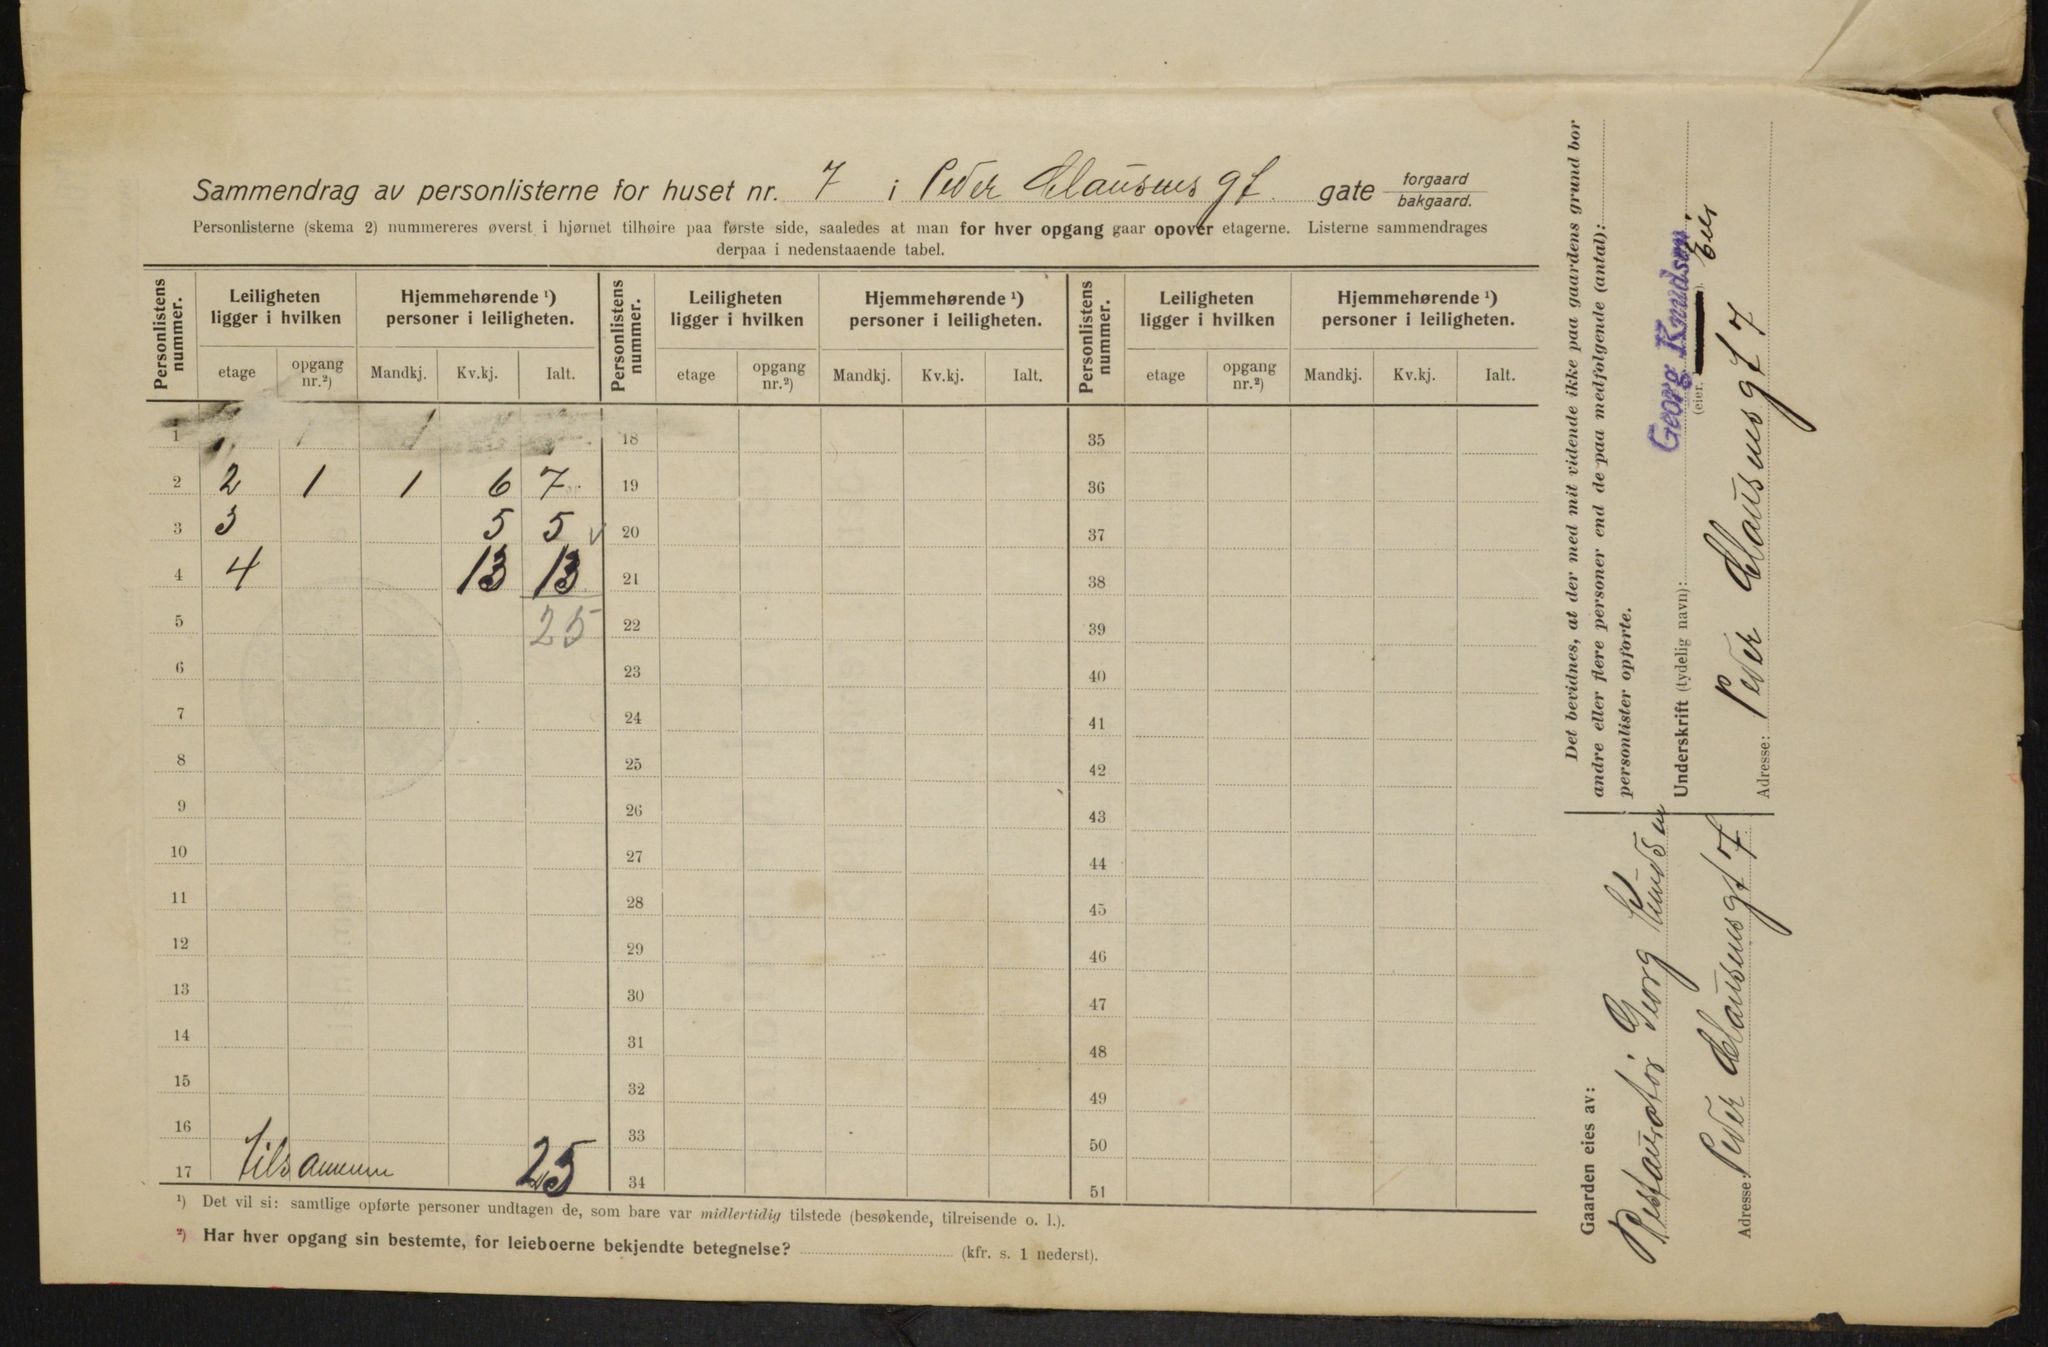 Sammendrag av personlisterne for huset nr. 7 i Peder Clausens gt. gate forgaard bakgaard.
Personlisterne (skema 2) nummereres øverst i hjørnet tilhøire paa første side, saaledes at man for hver opgang gaar opover etagerne. Listerne sammendrages
derpaa i nedenstaaende tabel.
Personlistens nummer. Leiligheten ligger i hvilken Hjemmehørende ¹) personer i leiligheten. Personlistens nummer. Leiligheten ligger i hvilken Hjemmehørende ¹) personer i leiligheten. Personlistens nummer. Leiligheten ligger i hvilken Hjemmehørende ¹) personer i leiligheten.
etage opgang nr.²) Mandkj. Kv.kj. Ialt. etage opgang nr.²) Mandkj. Kv.kj. Ialt. etage opgang nr.²) Mandkj. Kv.kj. Ialt.
1 1 1 18 35
2 2 1 1 6 7 19 36
3 3 5 5 20 37
4 4 13 13 21 38
5 25 22 39
6 23 40
7 24 41
8 25 42
9 26 43
10 27 44
11 28 45
12 29 46
13 30 47
14 31 48
15 32 49
16 33 50
17 Tilsammen 25 34 51
¹) Det vil si: samtlige opførte personer undtagen de, som bare var midlertidig tilstede (besøkende, tilreisende o. l.).
²) Har hver opgang sin bestemte, for leieboerne bekjendte betegnelse? (kfr. s. 1 nederst).
Det bevidnes, at der med mit vidende ikke paa gaardens grund bor
andre eller flere personer end de paa medfølgende (antal):
personlister opførte.
Georg Knudsen Eier
Underskrift (tydelig navn):
(eier.
Adresse: Peder Clausens gt 7
Gaarden eies av:
Restauratør Georg Knudsen
Adresse: Peder Clausens gt 7